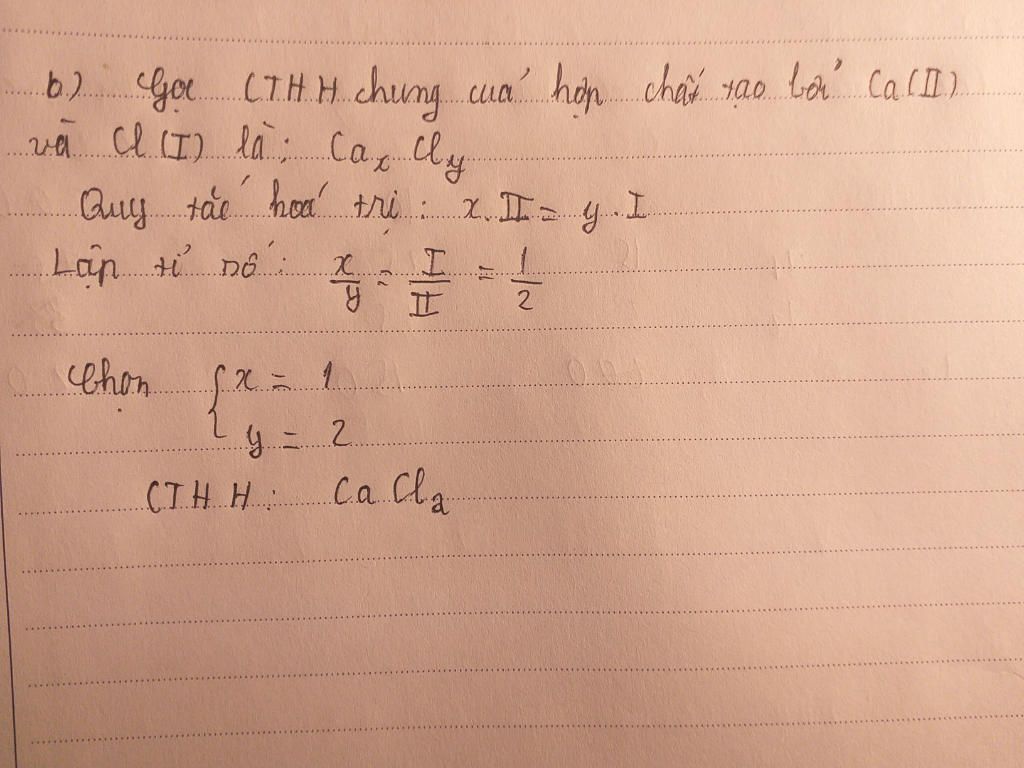 b.) Gọi CTHH chung của hợp chất tạo bởi Ca(II)
và Cl (I) là: CaₓClᵧ
Quy tắc hoá trị: x.II = y.I
Lập tỉ số: x/y = I/II = 1/2
Chọn { x = 1
y = 2
CTHH: CaCl₂